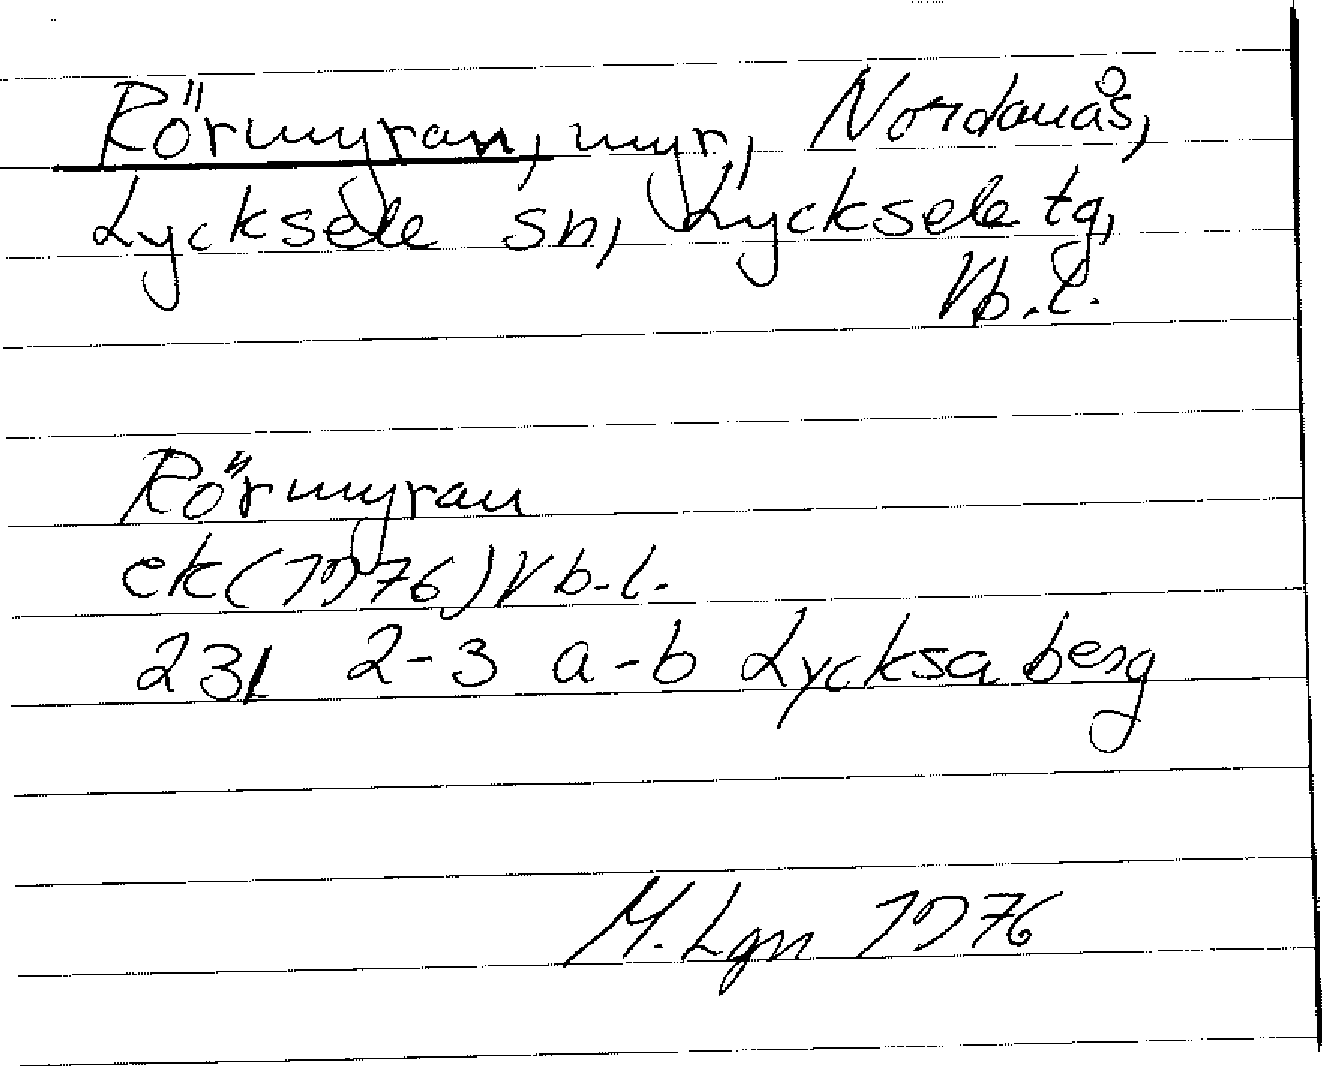 Rörmyran, myr, Nordanås,
Lycksele sn, Lycksele tg,
Vb.l.
Rörmyran
ek(1976)Vb.l.
23I 2-3 a-b Lycksaberg
M.Lgn 1976